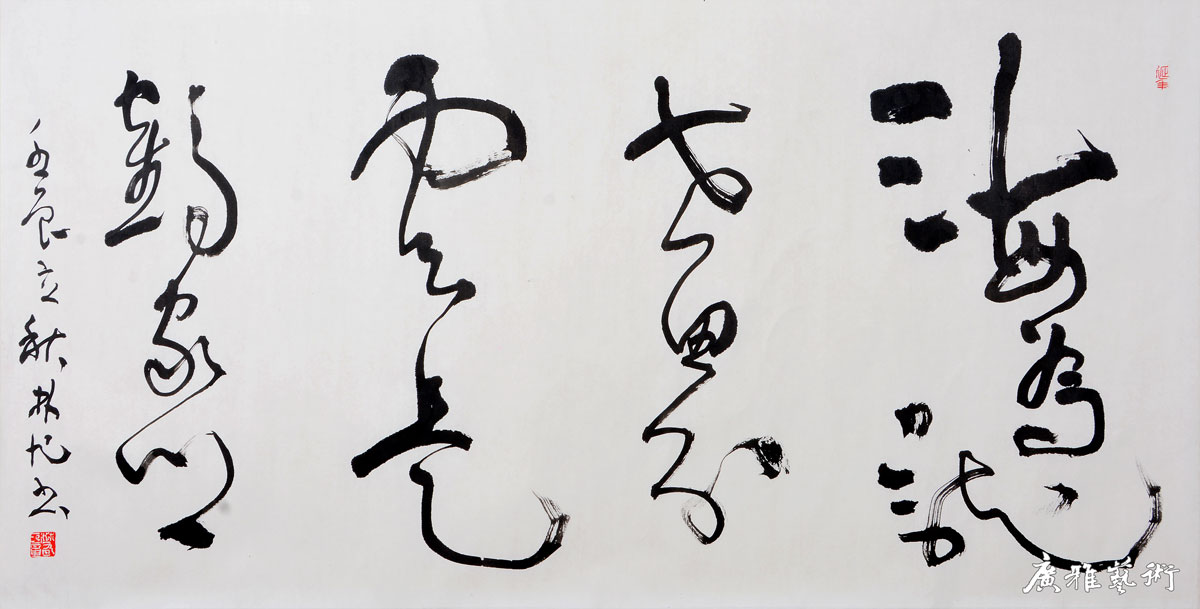 延年
海為龍
世界
雲是
鶴家鄉
壬辰立秋林凡书
廣雅藝術